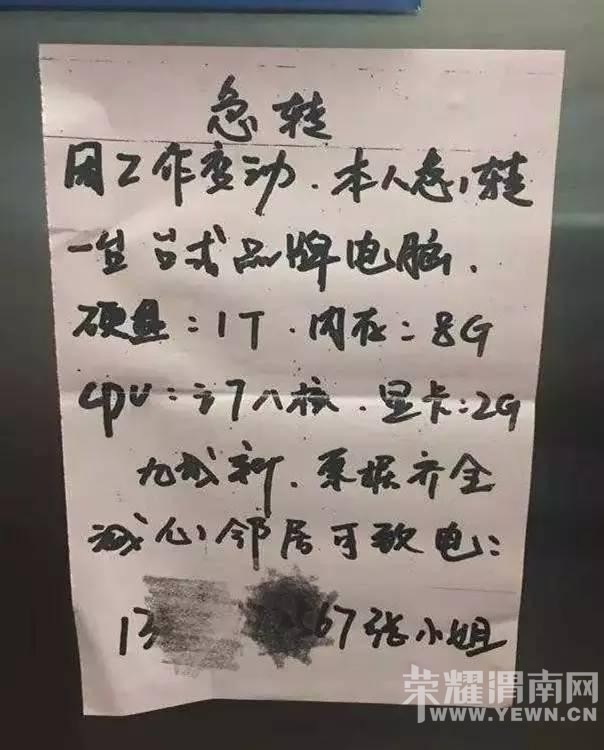 急转
因工作变动.本人急转
一台台式品牌电脑.
硬盘:1T.内存:8G
CPU:i7八核.显卡:2G
九成新.票据齐全
诚心邻居可致电:
13 567张小姐
荣耀渭南网
WWW.YEWN.CN